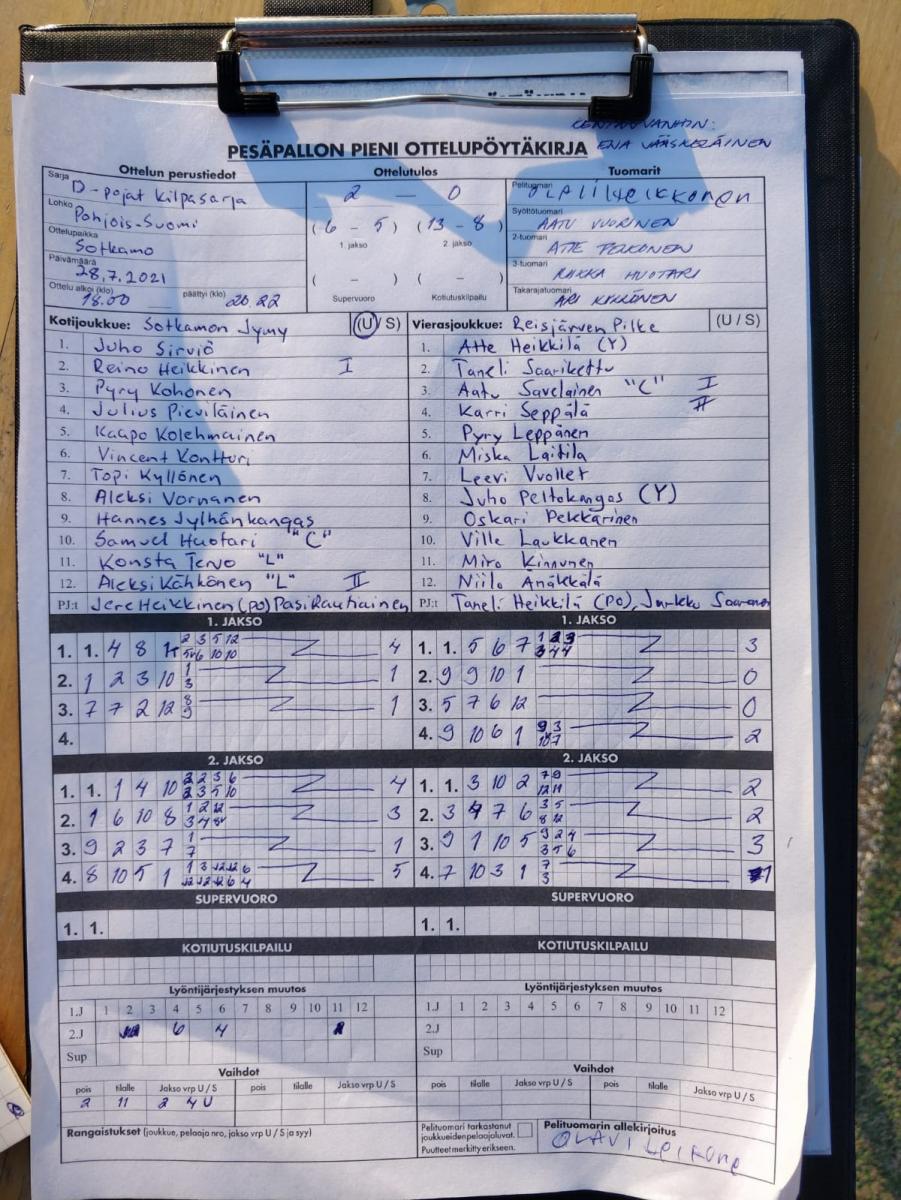 KENTÄNVANHIN:
PESÄPALLON PIENI OTTELUPÖYTÄKIRJA ENA VÄÄSKELÄINEN
Ottelun perustiedot
Sarja D-pojat kilpasarja
Lohko Pohjois-Suomi
Ottelupaikka Sotkamo
Päivämäärä 28.7.2021
Ottelu alkoi (klo) 18.00 päättyi (klo) 20 22
Ottelutulos
2 — 0
(6 - 5) (13 - 8)
1. jakso 2. jakso
( - ) ( - )
Supervuoro Kotiutuskilpailu
Tuomarit
Pelituomari
Syöttötuomari AATU VUORINEN
2-tuomari ATTE PELKONEN
3-tuomari MIIKKA HUOTARI
Takarajatuomari ARI KIKKONEN
Kotijoukkue: Sotkamon Jymy (U / S)
1. Juho Sirviö
2. Reino Heikkinen I
3. Pyry Kohonen
4. Julius Pieviläinen
5. Kaapo Kolehmainen
6. Vincent Kontturi
7. Topi Kyllönen
8. Aleksi Vornanen
9. Hannes Jylhänkangas
10. Samuel Huotari "C"
11. Konsta Tervo "L"
12. Aleksi Kähkönen "L" II
PJ:t Jere Heikkinen (po) Pasi Rautiainen
Vierasjoukkue: Reisjärven Pilke (U / S)
1. Atte Heikkilä (Y)
2. Taneli Saarikettu
3. Aatu Savelainen "C" I
4. Karri Seppälä II
5. Pyry Leppänen
6. Miska Laitila
7. Leevi Vuollet
8. Juho Peltokangas (Y)
9. Oskari Pekkarinen
10. Ville Laukkanen
11. Miro Kinnunen
12. Niilo Änäkkälä
PJ:t Taneli Heikkilä (po), Jarkko
1. JAKSO
1. 1. 4 8 2 3 5 12 4
10 10
2. 1 2 3 10 1 1
3
3. 7 7 2 12 8 1
9
4.
1. JAKSO
1. 1. 5 6 7 3
3 4 4
2. 9 9 10 1 0
3. 5 7 6 12 0
4. 9 10 6 1 9 3 2
2. JAKSO
1. 1. 1 4 10 2 2 3 6 4
2 3 5 10
2. 1 6 10 8 1 2 12 3
3 4 8
3. 9 2 3 7 1 1
7
4. 8 10 5 1 1 3 12 12 6 5
12 12 12 6 4
2. JAKSO
1. 1. 3 10 2 7 9 2
12 11
2. 3 4 7 6 3 5 2
8 12
3. 9 1 10 5 9 2 4 3
3 5 6
4. 7 10 3 1 7 1
3
SUPERVUORO
1. 1.
SUPERVUORO
1. 1.
KOTIUTUSKILPAILU
KOTIUTUSKILPAILU
Lyöntijärjestyksen muutos
1.J 1 2 3 4 5 6 7 8 9 10 11 12
2.J 6 4
Sup
Lyöntijärjestyksen muutos
1.J 1 2 3 4 5 6 7 8 9 10 11 12
2.J
Sup
Vaihdot
pois tilalle Jakso vrp U / S pois tilalle Jakso vrp U / S
2 11 2 4 U
Vaihdot
pois tilalle Jakso vrp U / S pois tilalle Jakso vrp U / S
Rangaistukset (joukkue, pelaaja nro, jakso vrp U / S ja syy)
Pelituomari tarkastanut
joukkueiden pelaajaluvat.
Puutteet merkitty erikseen.
Pelituomarin allekirjoitus